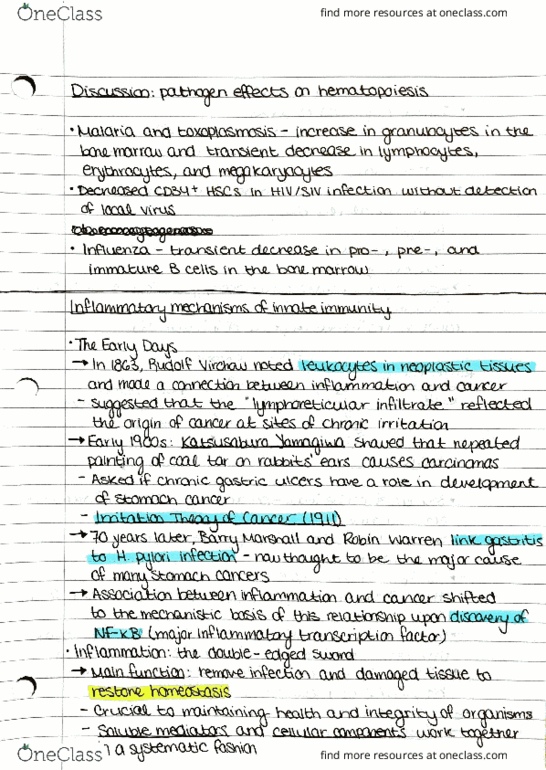 OneClass
find more resources at oneclass.com
Discussion: pathogen effects on hematopoiesis
• Malaria and toxoplasmosis - increase in granulocytes in the
bone marrow and transient decrease in lymphocytes,
erythrocytes, and megakaryocytes
• Decreased CD34+ HSCs in HIV/SIV infection without detection
of local virus
• Influenza - transient decrease in pro-, pre-, and
immature B cells in the bone marrow
Inflammatory mechanisms of innate immunity
• The Early Days
→ In 1863, Rudolf Virchow noted leukocytes in neoplastic tissues
and made a connection between inflammation and cancer
- suggested that the "lymphoreticular infiltrate" reflected
the origin of cancer at sites of chronic irritation
→ Early 1900s: Katsusaburo Yamagiwa showed that repeated
painting of coal tar on rabbits' ears causes carcinomas
- Asked if chronic gastric ulcers have a role in development
of stomach cancer
- Irritation Theory of Cancer (1911)
→ 70 years later, Barry Marshall and Robin Warren link gastritis
to H. pylori infection - now thought to be the major cause
of many stomach cancers
→ Association between inflammation and cancer shifted
to the mechanistic basis of this relationship upon discovery of
NF-kB (major inflammatory transcription factor)
• Inflammation: the double-edged sword
→ Main function: remove infection and damaged tissue to
restore homeostasis
- Crucial to maintaining health and integrity of organisms
- Soluble mediators and cellular components work together
in a systematic fashion
OneClass
find more resources at oneclass.com